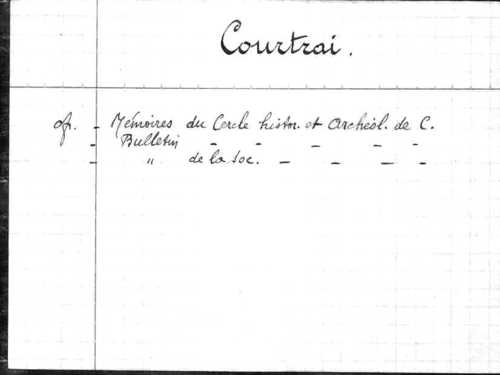 Courtrai.
cf. - Mémoires du Cercle histor. et Archéol. de C.
- Bulletin - - - - -
- " de la Soc. - - - -